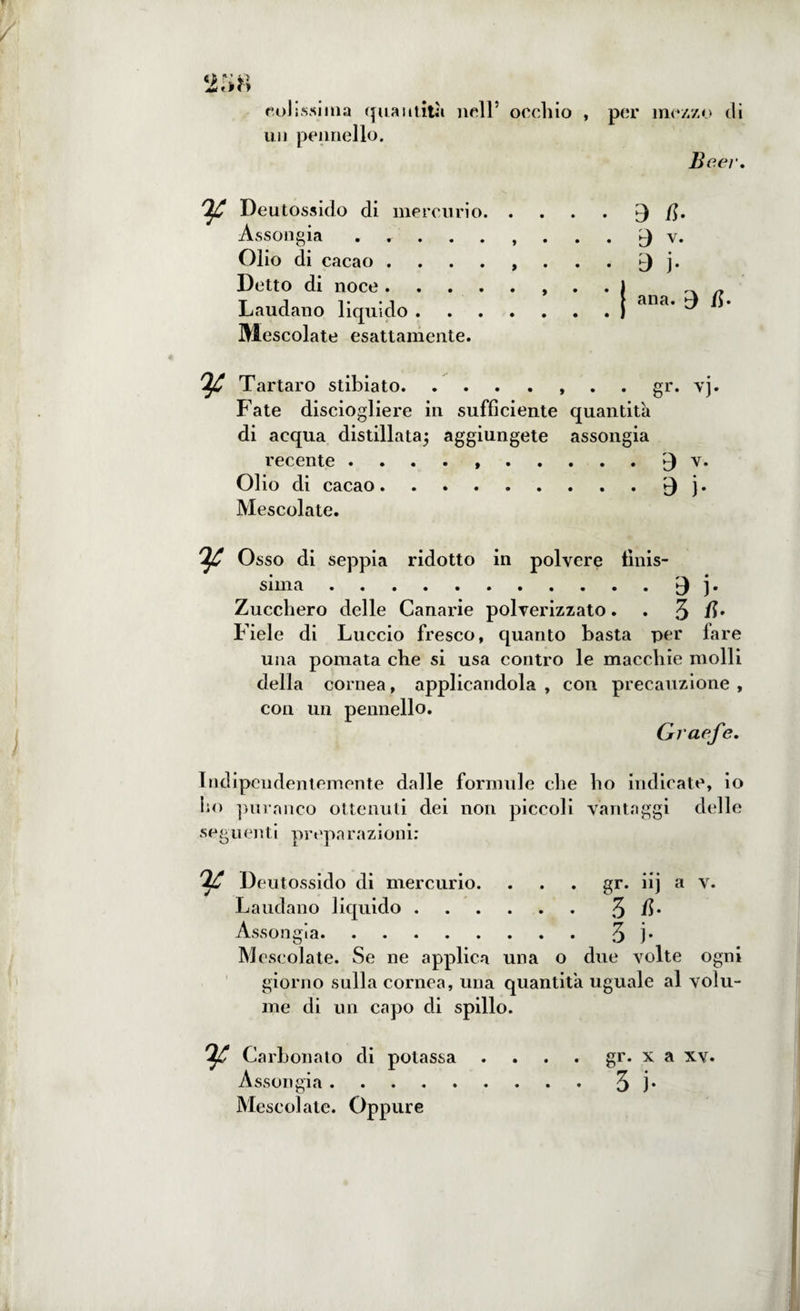 238
colissima quantità nell' occhio , per mezzo di
un pennello.
Beer.
♃ Deutossido di mercurio. . . . . ℈ ß.
Assongia . . . . . . , . . . ℈ v.
Olio di cacao . . . . , . . . ℈ j.
Detto di noce . . . . . , . . } ana. ℈ ß.
Laudano liquido . . . . . . . }
Mescolate esattamente.
♃ Tartaro stibiato. . . . . . , . . gr. vj.
Fate disciogliere in sufficiente quantità
di acqua distillata; aggiungete assongia
recente . . . . , . . . . . . ℈ v.
Olio di cacao. . . . . . . . . . ℈ j.
Mescolate.
♃ Osso di seppia ridotto in polvere finis-
sima . . . . . . . . . . . ℈ j.
Zucchero delle Canarie polverizzato . . ʒ ß.
Fiele di Luccio fresco, quanto basta per fare
una pomata che si usa contro le macchie molli
della cornea, applicandola , con precauzione ,
con un pennello.
Graefe.
Indipendentemente dalle formule che ho indicate, io
ho puranco ottenuti dei non piccoli vantaggi delle
seguenti preparazioni:
♃ Deutossido di mercurio. . . . gr. iij a v.
Laudano liquido . . . . . . ʒ ß.
Assongia. . . . . . . . . ʒ j.
Mescolate. Se ne applica una o due volte ogni
giorno sulla cornea, una quantità uguale al volu-
me di un capo di spillo.
♃ Carbonato di potassa . . . . gr. x a xv.
Assongia . . . . . . . . . ʒ j.
Mescolate. Oppure